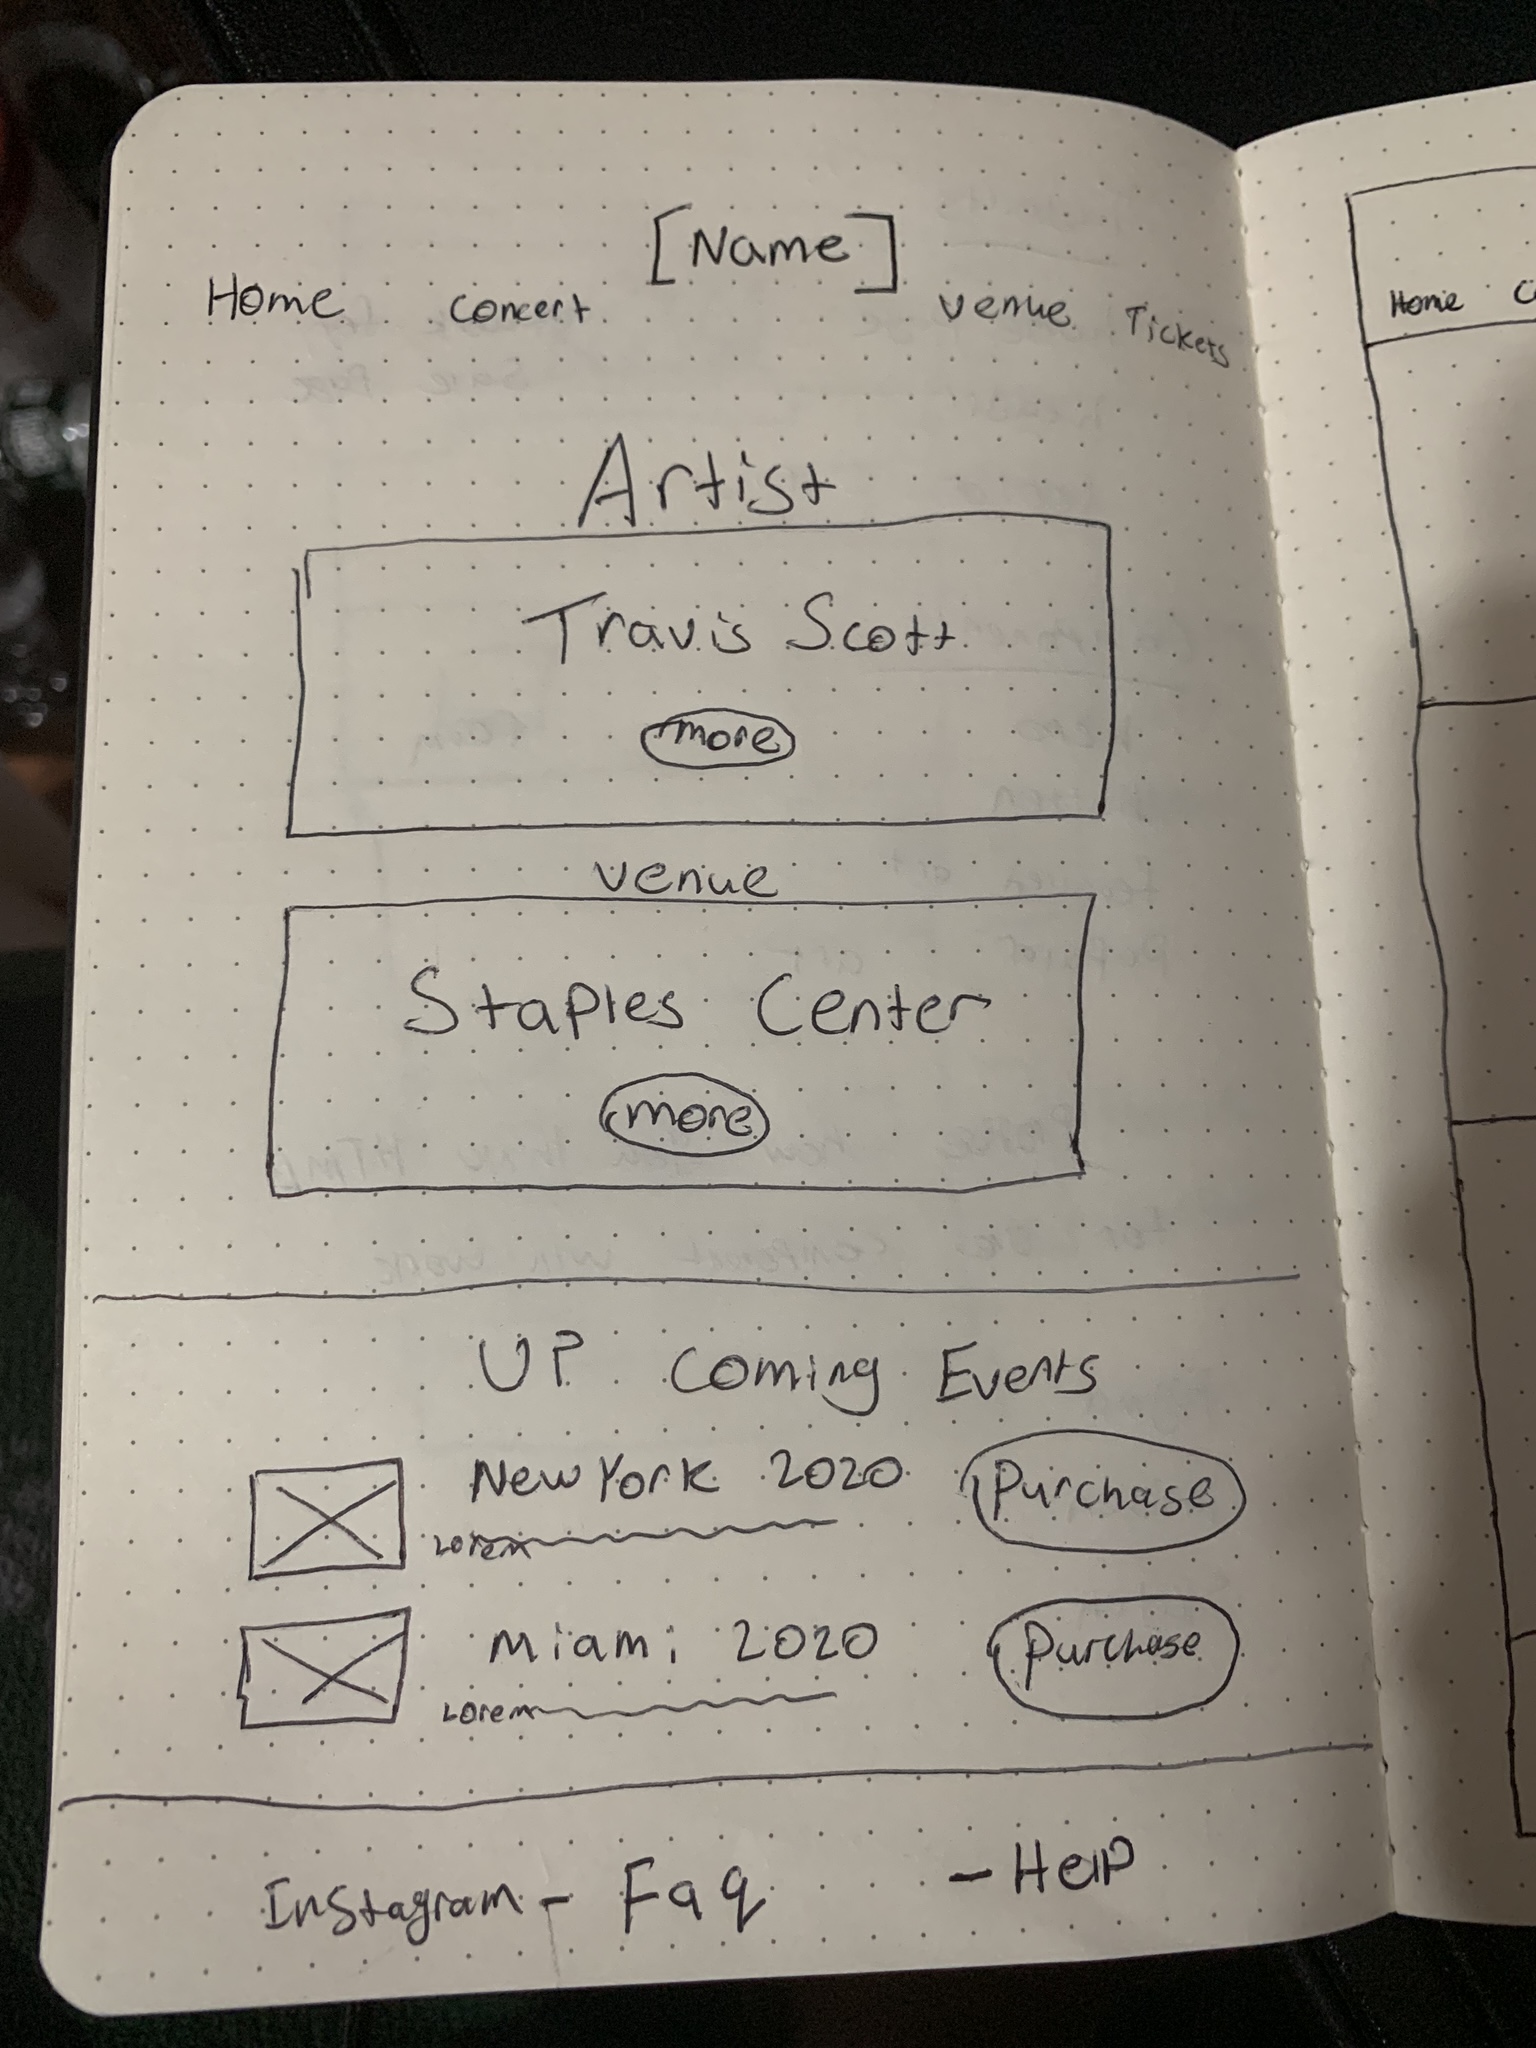 [Name]
Home concert venue Tickets
Artist
Travis Scott
more
venue
Staples Center
more
UP Coming Events
New York 2020 Purchase
Lorem
Miami 2020 Purchase
Lorem
Instagram - Faq - Help
Home